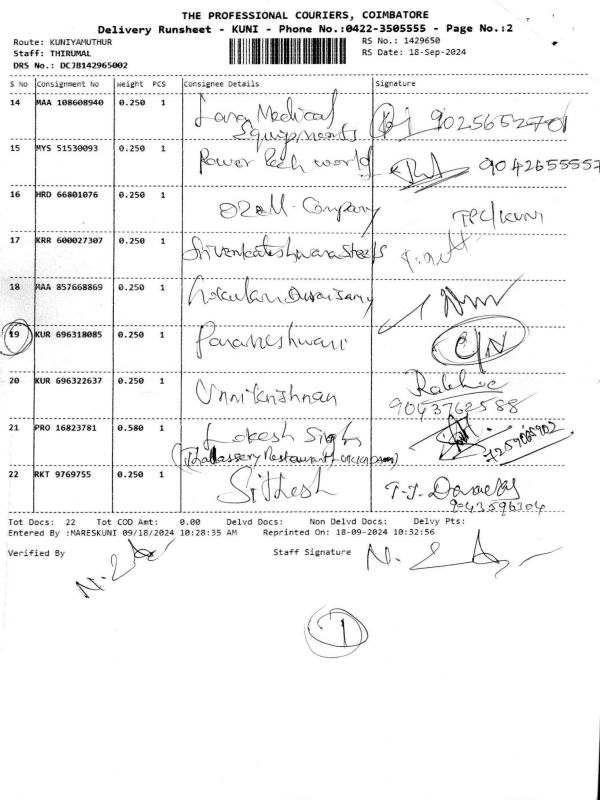 THE PROFESSIONAL COURIERS, COIMBATORE
Delivery Runsheet - KUNI - Phone No.:0422-3505555 - Page No.:2
Route: KUNIYAMUTHUR RS No.: 1429650
Staff: THIRUMAL RS Date: 18-Sep-2024
DRS No.: DCJB142965002
S No Consignment No Weight PCS Consignee Details Signature
14 MAA 108608940 0.250 1 Lara Medical
Equipments 9025652701
15 MYS 51530093 0.250 1 Power Tech world 9042655557
16 HRD 66801076 0.250 1 Company TPC/KUNI
17 KRR 600027307 0.250 1 Srivenkateshwara Steels
18 MAA 857668869 0.250 1 Gokulan Duraisamy
19 KUR 696318085 0.250 1 Parameshwari C/N
20 KUR 696322637 0.250 1 Unnikrishnan
9043762588
21 PRO 16823781 0.580 1 Lokesh Singh
(Thalassery Restaurant
22 RKT 9769755 0.250 1 Sithesh
9043596304
Tot Docs: 22 Tot COD Amt: 0.00 Delvd Docs: Non Delvd Docs: Delvy Pts:
Entered By :MARESKUNI 09/18/2024 10:28:35 AM Reprinted On: 18-09-2024 10:32:56
Verified By Staff Signature
1